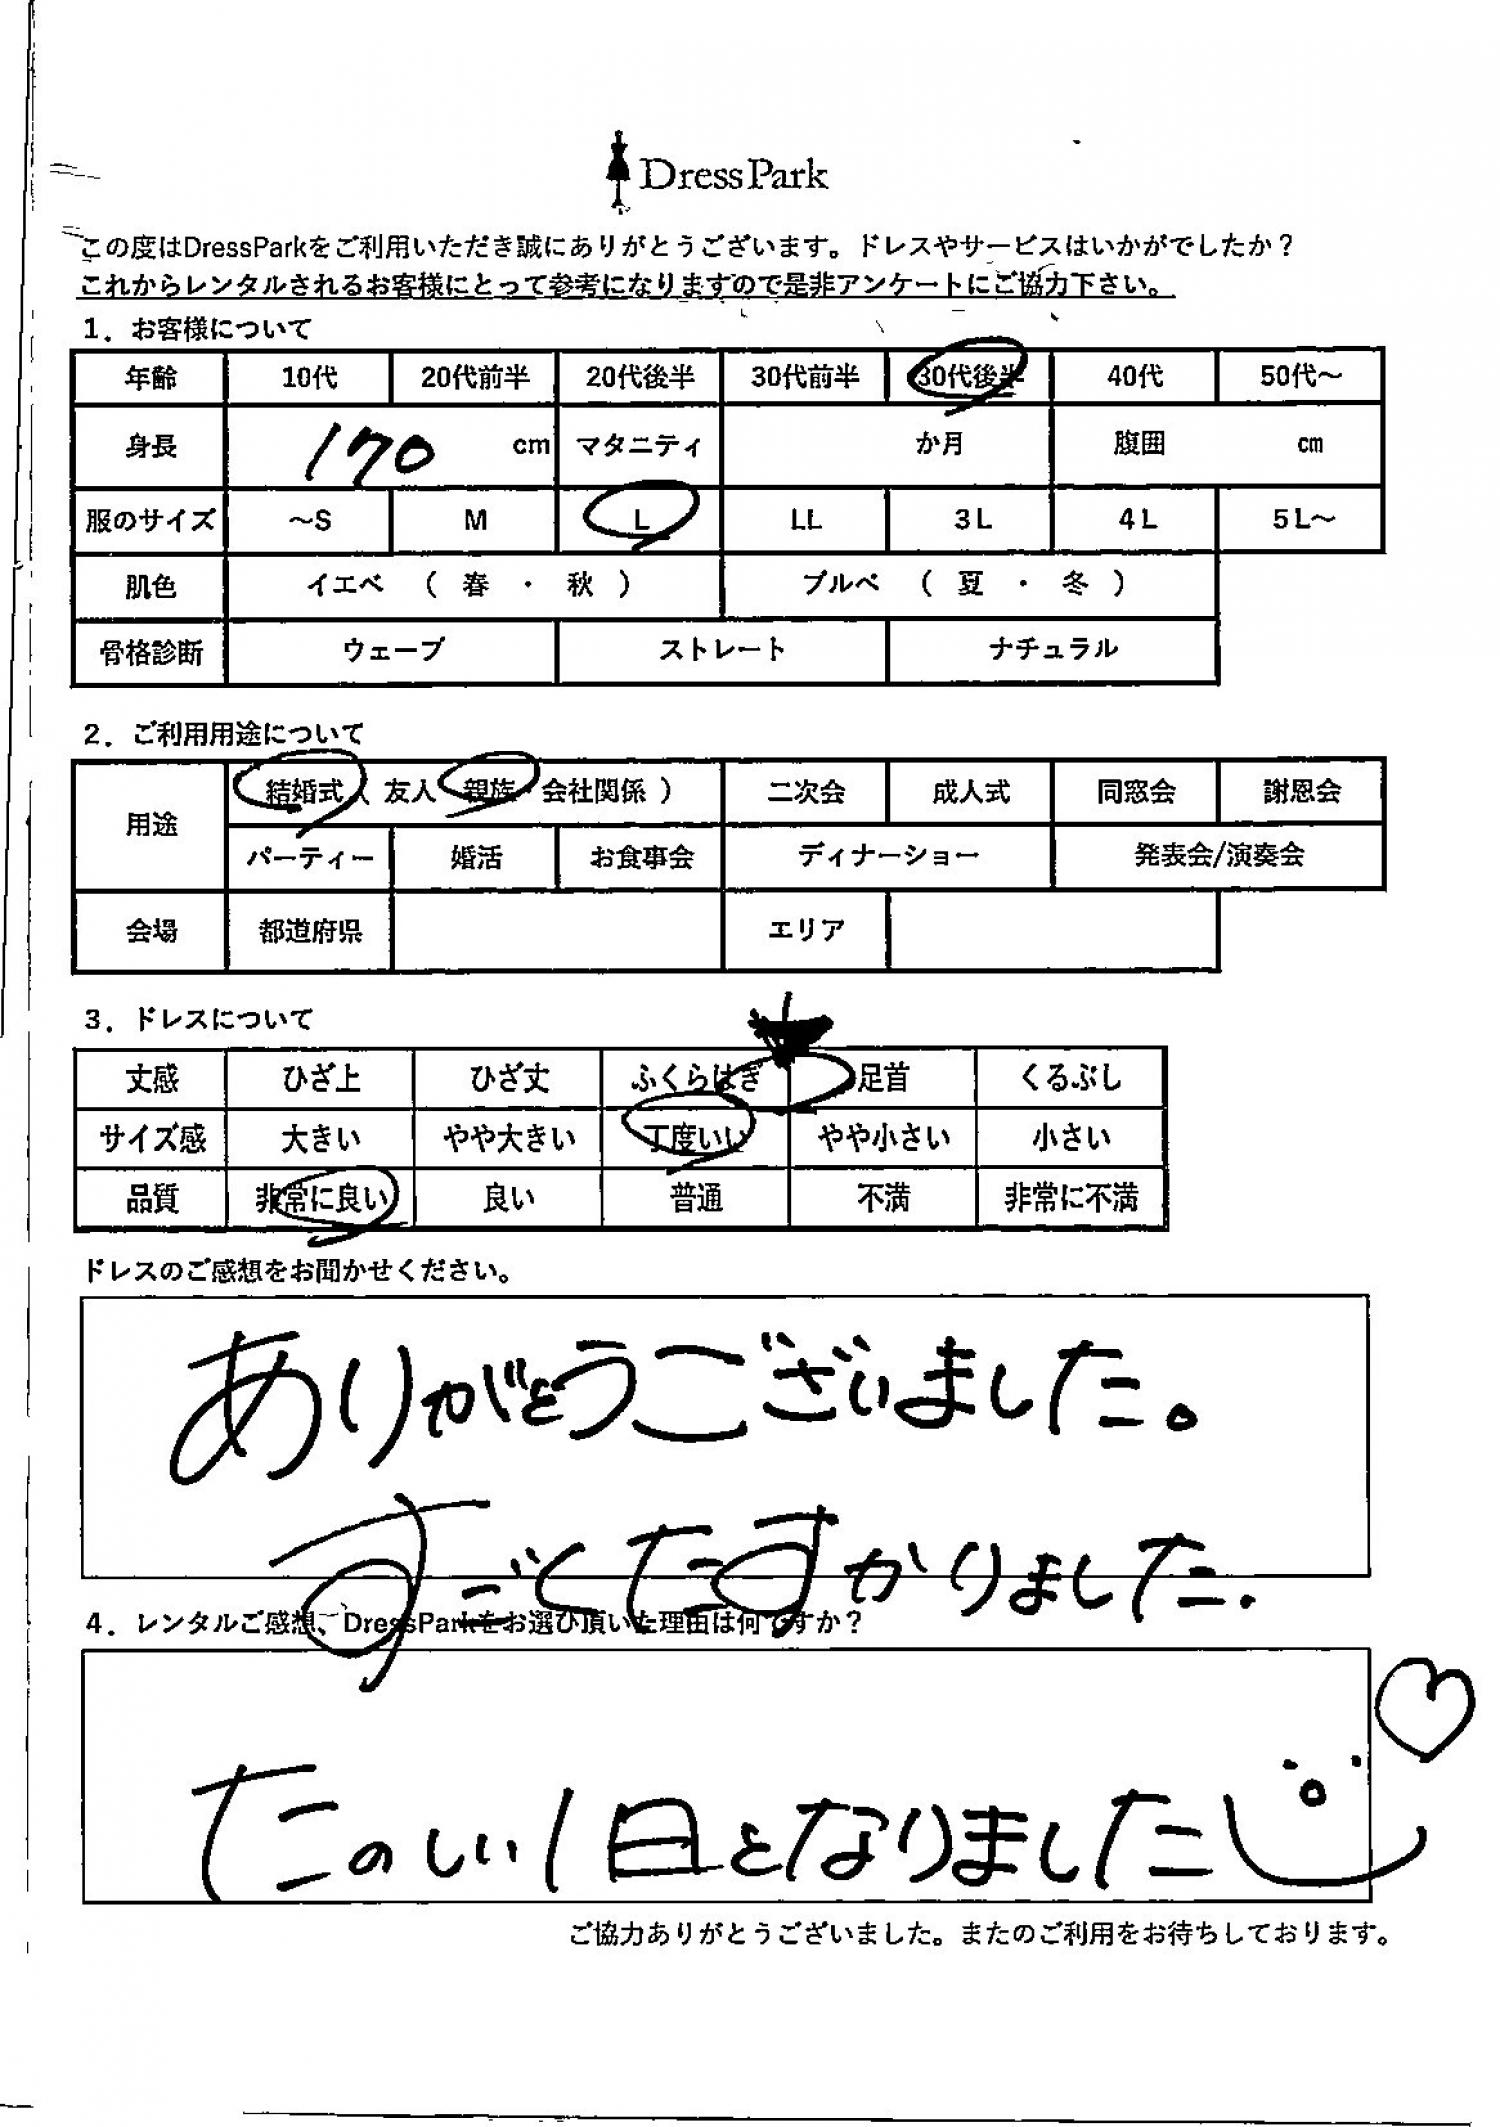 DressPark
この度はDressParkをご利用いただき誠にありがとうございます。ドレスやサービスはいかがでしたか？
これからレンタルされるお客様にとって参考になりますので是非アンケートにご協力下さい。
1．お客様について
年齢 10代 20代前半 20代後半 30代前半 30代後半 40代 50代〜
身長 170 cm マタニティ か月 腹囲 cm
服のサイズ 〜S M L LL 3L 4L 5L〜
肌色 イエベ （ 春 ・ 秋 ） ブルベ （ 夏 ・ 冬 ）
骨格診断 ウェーブ ストレート ナチュラル
2．ご利用用途について
用途 結婚式（ 友人 親族 会社関係 ） 二次会 成人式 同窓会 謝恩会
パーティー 婚活 お食事会 ディナーショー 発表会/演奏会
会場 都道府県 エリア
3．ドレスについて
丈感 ひざ上 ひざ丈 ふくらはぎ 足首 くるぶし
サイズ感 大きい やや大きい 丁度いい やや小さい 小さい
品質 非常に良い 良い 普通 不満 非常に不満
ドレスのご感想をお聞かせください。
ありがとうございました。
すごくたすかりました.
4．レンタルご感想、DressParkをお選び頂いた理由は何ですか？
たのしい1日となりました
ご協力ありがとうございました。またのご利用をお待ちしております。